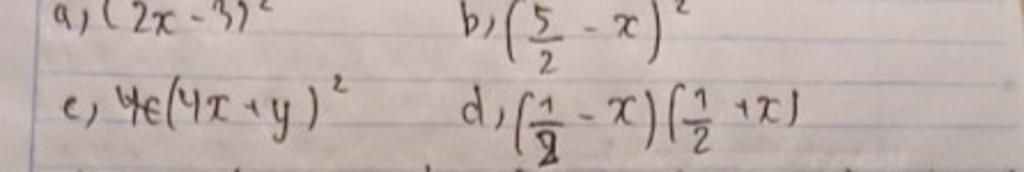 a, (2x - 3)² b, (5/2 - x)²
c, (4x + y)² d, (1/2 - x)(1/2 + x)